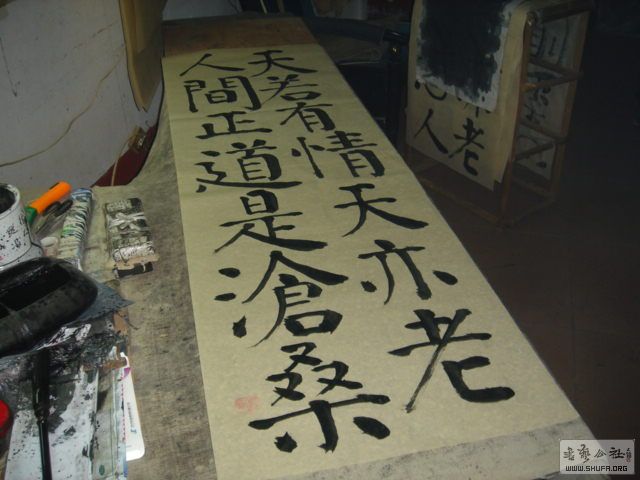 天若有情天亦老
人間正道是滄桑
老
人
書藝公社
WWW.SHUFA.ORG